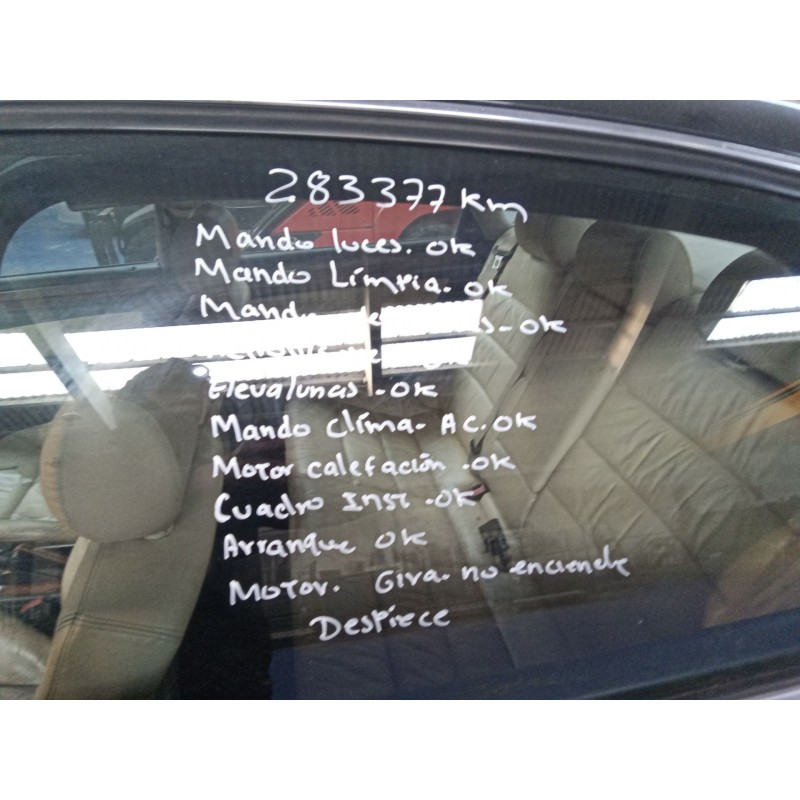 283377 km
Mando luces. ok
Mando Limpia. ok
ok
ok
Elevalunas - ok
Mando clima - AC. ok
Motor calefación . ok
Cuadro Inst . ok
Arranque ok
Motor. Gira - no enciende
Despiece